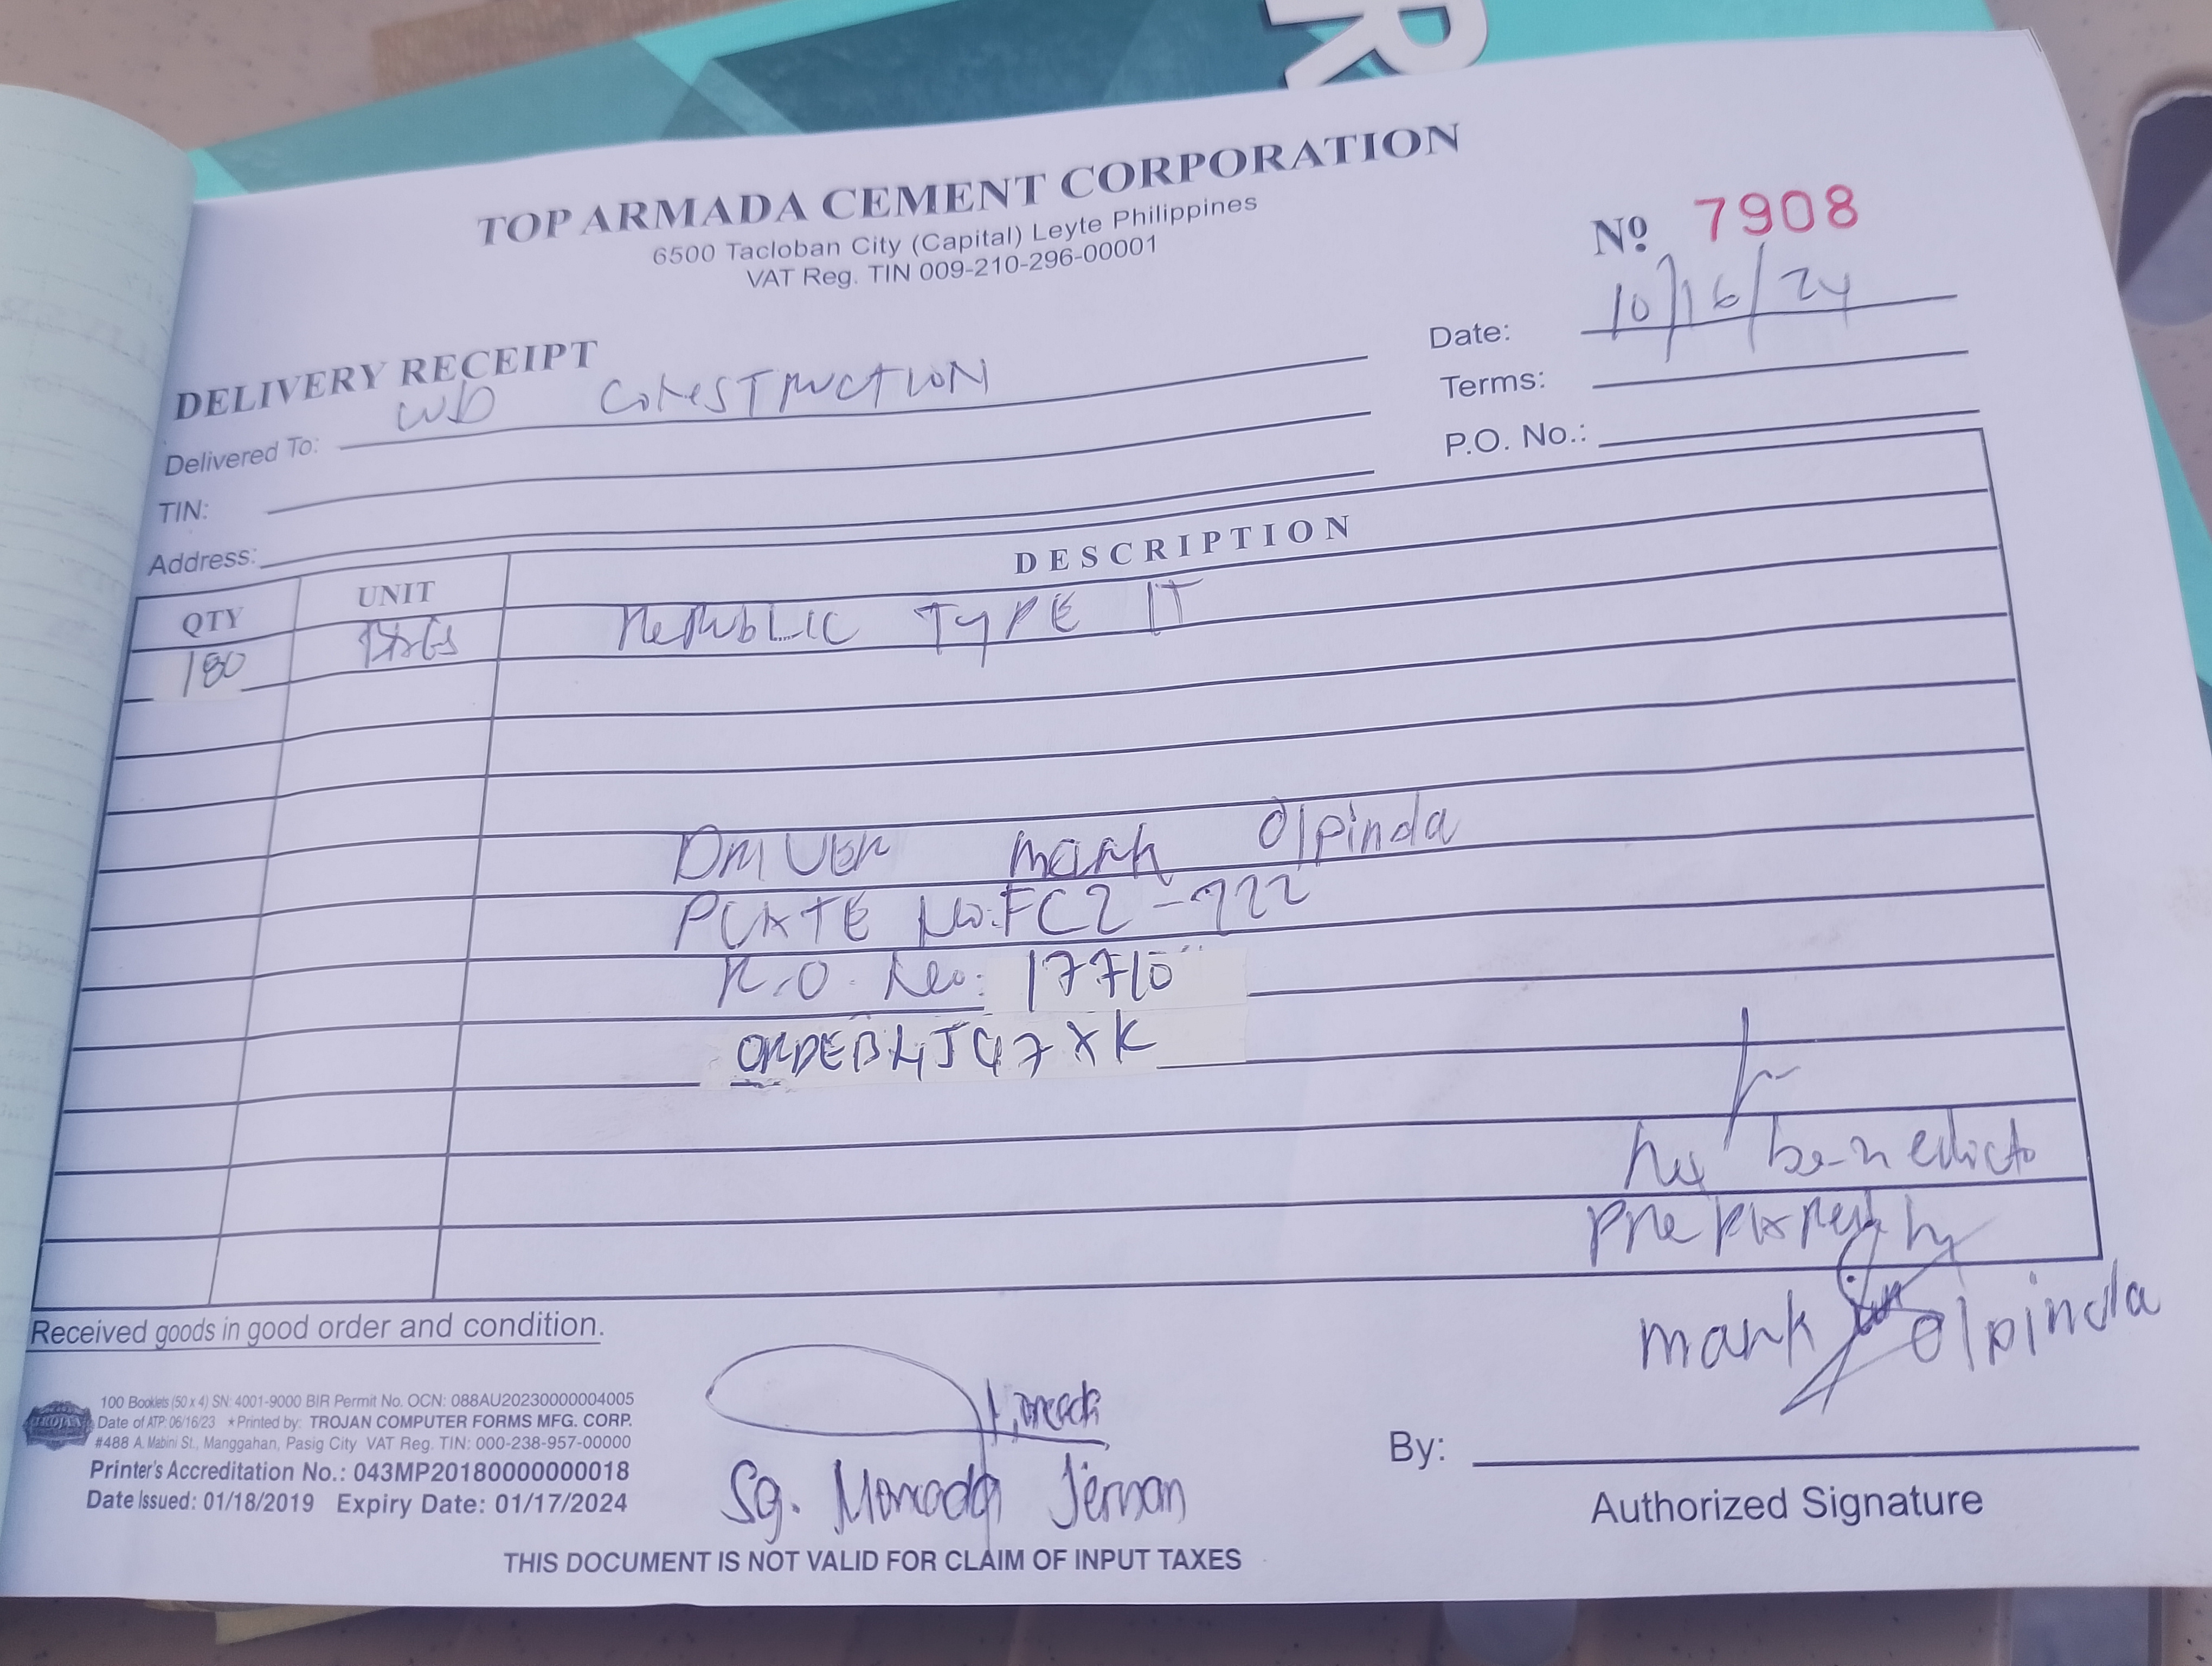 R
TOP ARMADA CEMENT CORPORATION
6500 Tacloban City (Capital) Leyte Philippines
VAT Reg. TIN 009-210-296-00001
Nº 7908
DELIVERY RECEIPT
Date: 10/16/24
Delivered To: WD CONSTRUCTION
Terms:
TIN:
P.O. No.:
Address:
QTY UNIT DESCRIPTION
180 BAGS REPUBLIC TYPE IT
DRIVER mark Olpinda
PLATE No: FC2-722
R.O. No: 17710
ORDEB4JQ7XK
benedicto
Prepared by
mark Olpinda
Received goods in good order and condition.
100 Booklets (50 x 4) SN: 4001-9000 BIR Permit No. OCN: 088AU20230000004005
Date of ATP: 06/16/23 ★Printed by: TROJAN COMPUTER FORMS MFG. CORP.
TROJAN
#488 A. Mabini St., Manggahan, Pasig City VAT Reg. TIN: 000-238-957-00000
Printer's Accreditation No.: 043MP20180000000018
Date Issued: 01/18/2019 Expiry Date: 01/17/2024
Sg. Moncada Jernan
By:
Authorized Signature
THIS DOCUMENT IS NOT VALID FOR CLAIM OF INPUT TAXES